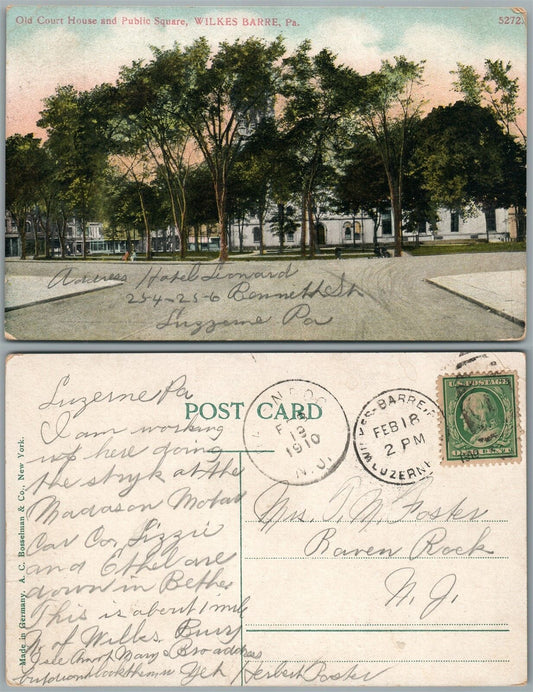 Old Court House and Public Square, WILKES BARRE, Pa.
5272.
Address Hotel Leonard
254-25-6 Bennett St
Luzzerne Pa
Luzerne Pa
I am working
up here doing
the stryk at the
Madason Motar
Car Co, Lizzie
and Ethel are
down in Bethe
This is about 1 mile
N. of Wilks Burry
I see Mary Bro address
but dont look them up yeh Herbert Foster
Made in Germany, A. C. Bosselman & Co., New York.
POST CARD
FEB
19
1910
N.J.
WILKES-BARRE, PA.
FEB 18
2 PM
LUZERNE
U.S. POSTAGE
ONE CENT
Mrs. T. M. Foster
Raven Rock
N. J.